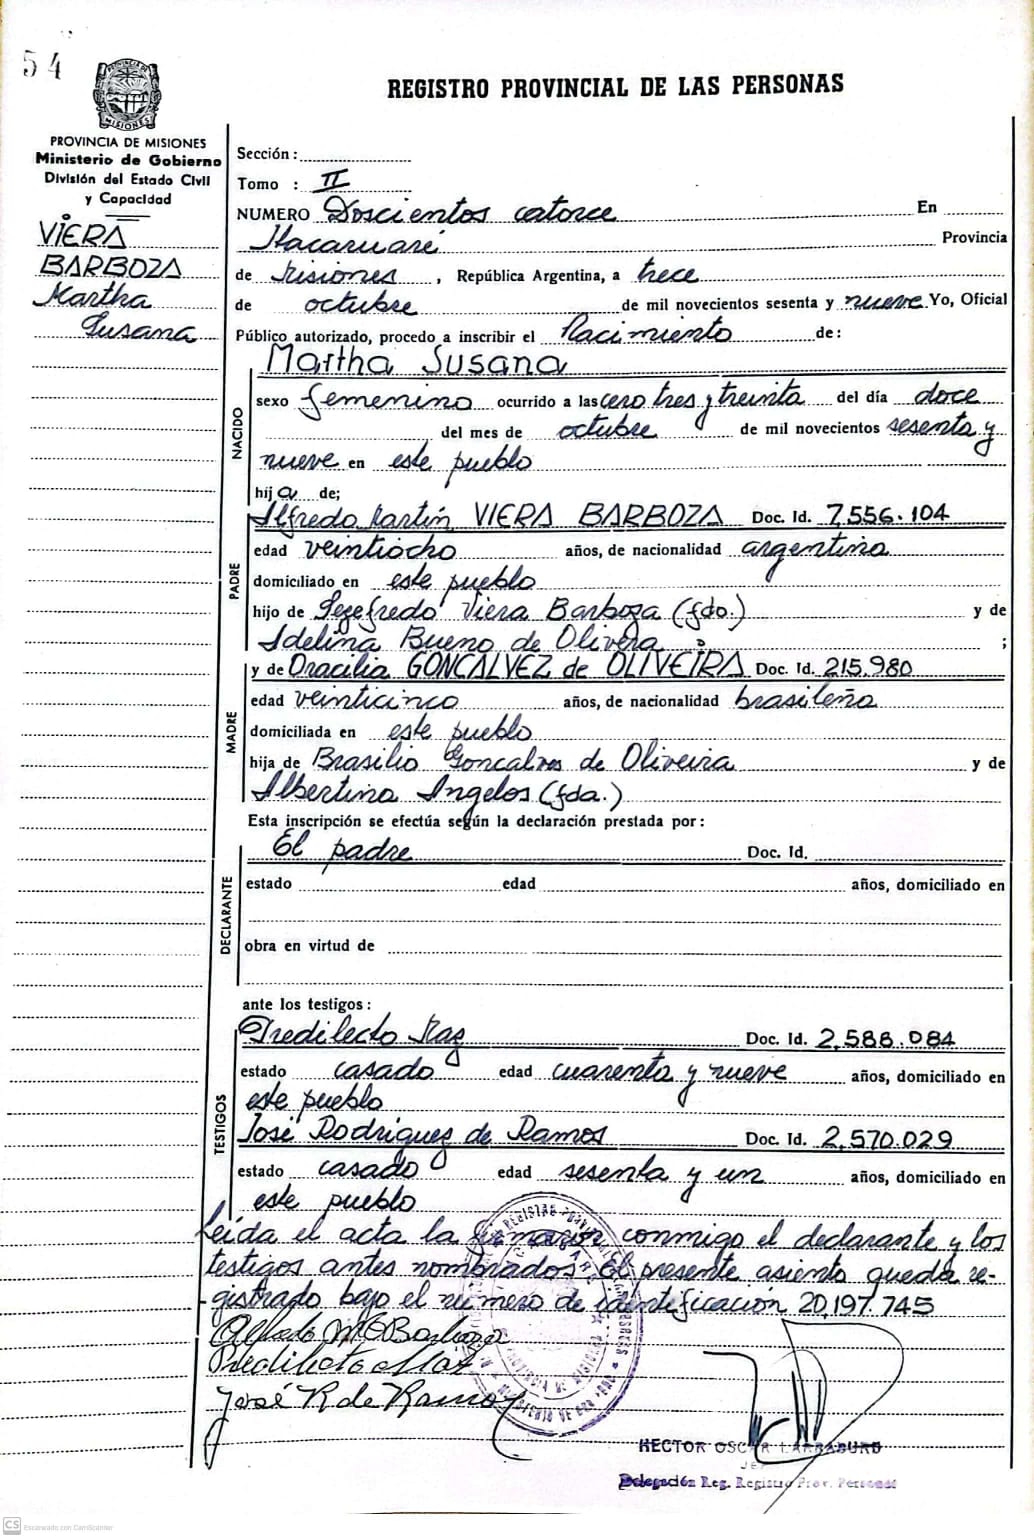 54
REGISTRO PROVINCIAL DE LAS PERSONAS
PROVINCIA DE MISIONES
Ministerio de Gobierno
División del Estado Civil
y Capacidad
VIERA
BARBOZA
Martha
Susana
Sección:
Tomo : II
NUMERO Doscientos catorce En
Itacaruaré Provincia
de Misiones, República Argentina, a trece
de octubre de mil novecientos sesenta y nueve Yo, Oficial
Público autorizado, procedo a inscribir el Nacimiento de:
Martha Susana
NACIDO
sexo femenino ocurrido a las cero tres y treinta del día doce
del mes de octubre de mil novecientos sesenta y
nueve en este pueblo
hija de;
PADRE
Alfredo Martín VIERA BARBOZA Doc. Id. 7,556.104
edad veintiocho años, de nacionalidad argentina
domiciliado en este pueblo
hijo de Segefredo Viera Barboza (fdo.) y de
Idelina Bueno de Olivera ;
MADRE
y de Oracilia GONCALVEZ de OLIVEIRA Doc. Id. 215,980
edad veinticinco años, de nacionalidad brasileña
domiciliada en este pueblo
hija de Brasilio Goncalves de Oliveira y de
Albertina Angelos (fda.)
Esta inscripción se efectúa según la declaración prestada por:
DECLARANTE
El padre Doc. Id.
estado edad años, domiciliado en
obra en virtud de
ante los testigos:
TESTIGOS
Predilecto Maz Doc. Id. 2,588.084
estado casado edad cuarenta y nueve años, domiciliado en
este pueblo
José Rodriguez de Ramos Doc. Id. 2,570.029
estado casado edad sesenta y un años, domiciliado en
este pueblo
Leída el acta la firmaron conmigo el declarante y los
testigos antes nombrados. El presente asiento queda re-
gistrado bajo el número de identificación 20,197.745
Alfredo M V Barboza
Predilecto Maz
José R de Ramos
HECTOR OSCAR LARRABURU
JEFE
Delegación Reg. Registro Prov. Personas
CS Escaneado con CamScanner